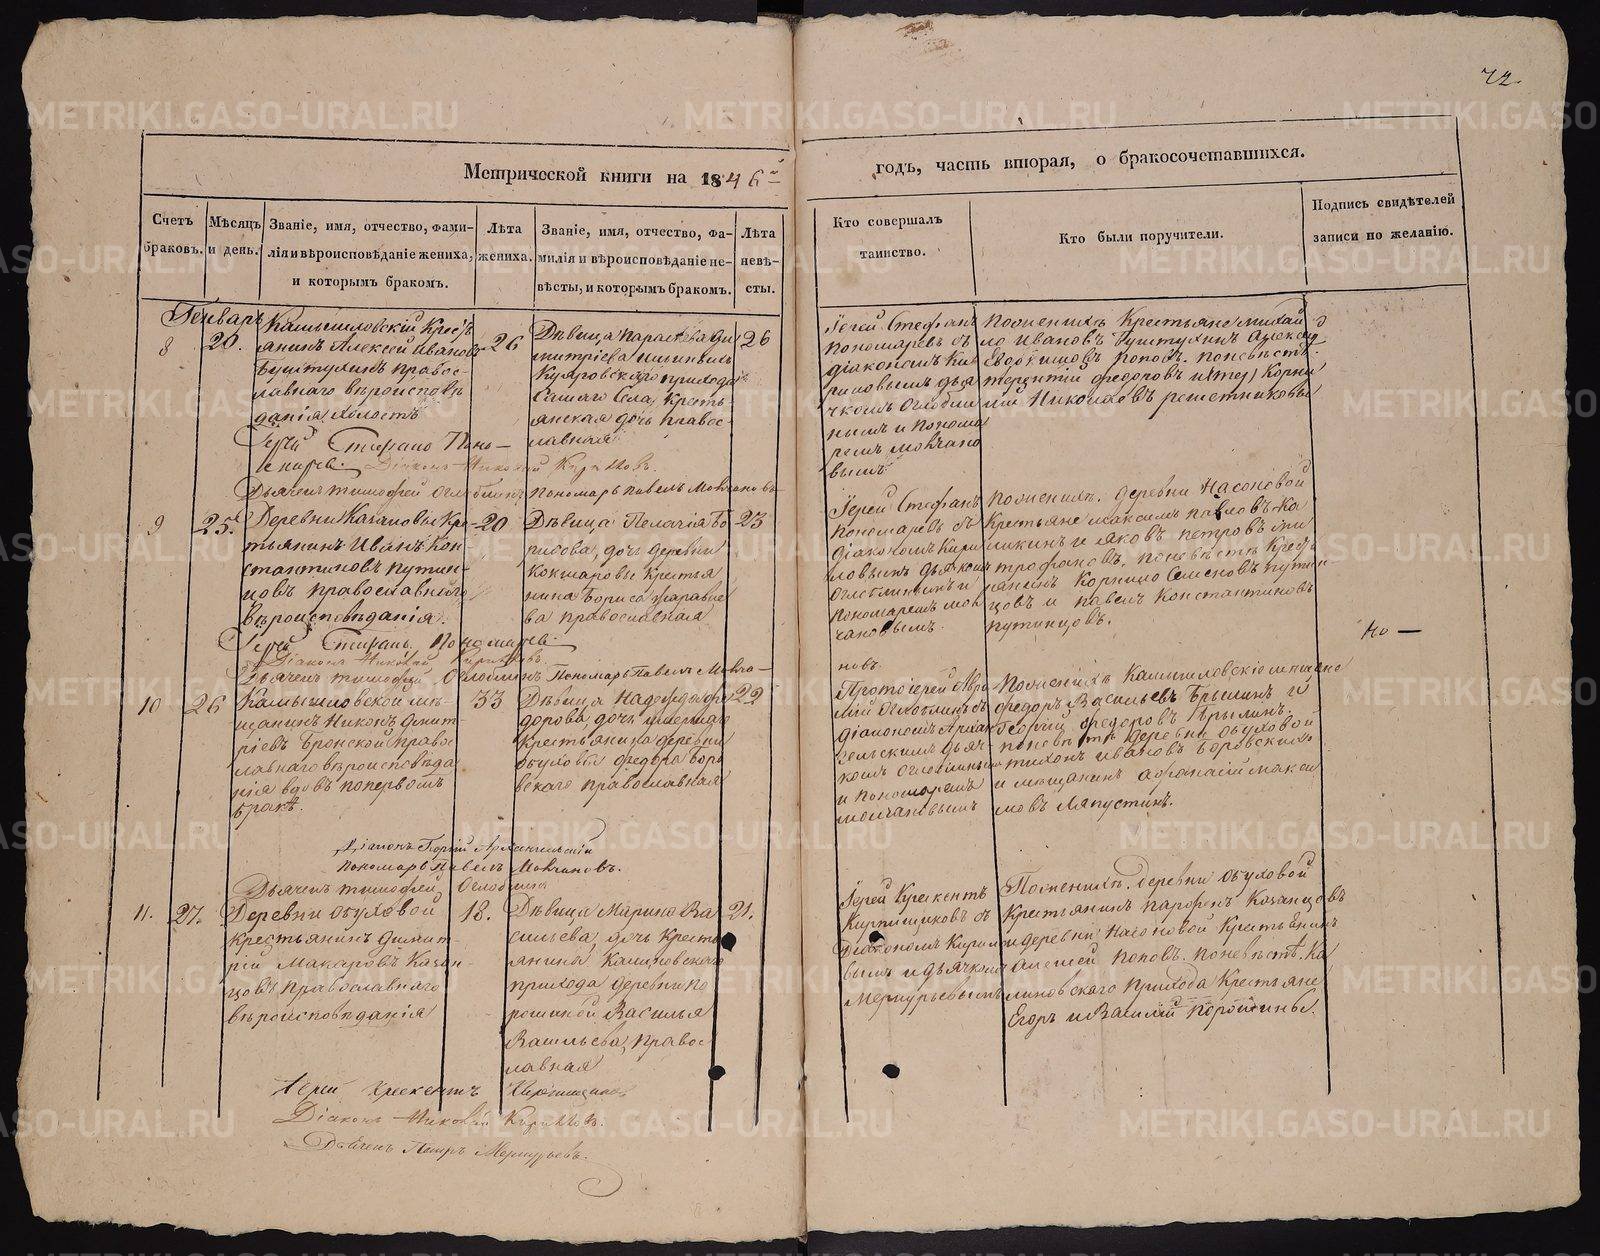 72.
Метрической книги на 1846й
годъ, часть вторая, о бракосочетавшихся.
Счетъ браковъ.
Мѣсяцъ и день.
Званіе, имя, отчество, фами-
лія и вѣроисповѣданіе жениха,
и которымъ бракомъ.
Лѣта
жениха.
Званіе, имя, отчество, фа-
милія и вѣроисповѣданіе не-
вѣсты, и которымъ бракомъ.
Лѣта
невѣ-
сты.
Кто совершалъ
таинство.
Кто были поручители.
Подпись свидѣтелей
записи по желанію.
Генварь
8
20.
Камышловскій Крестъ
янинъ Алексей Ивановъ
Туштухинъ правос-
лавнаго вѣроисповѣ
данія холостъ
26
Дѣвица Параскева Ди
митріева
Куяровскаго прихода
Самаго Села, Кресть-
янская дочь правос-
лавная
26
Іерей Стефанъ
Пономаревъ съ
діакономъ Ки
риловымъ дья
чкомъ Оглобли
нымъ и Понома
ремъ Молчано
вымъ
По женихѣ Крестьяне Михай
ло Ивановъ Туштухинъ Алексей
Евдокимовъ Поповъ. по невѣстѣ
Терентій Федоровъ и Корни
лій Николаевъ Решетниковы
Іерей Стефанъ Поно-
маревъ. Діаконъ Николай Кириловъ.
Дьячекъ Тимофей Оглоблинъ Пономарь Павелъ Молчановъ
9
25.
Деревни Казаковы Кре-
тьянинъ Иванъ Кон-
стантиновъ Путин-
цовъ православнаго
вѣроисповѣданія.
20
Дѣвица Пелагія Бо
рисова, дочь деревни
Кокшаровы Крестья
нина Бориса
ва православная
23
Іерей Стефанъ
Пономаревъ съ
Діакономъ Кири
ловымъ дьячкомъ
Оглоблинымъ и
Пономаремъ Мол
чановымъ.
По женихѣ. деревни Насоновой
Крестьяне Максимъ Павловъ Ка
ликинъ и Яковъ Петровъ Ми
трофановъ. по невѣстѣ Кресть
янинъ Корнило Семеновъ Путин-
цовъ и Павелъ Константиновъ
Путинцовъ.
Но —
Іерей Стефанъ Пономаревъ.
Діаконъ Николай Кириловъ.
Дьячекъ Тимофей Оглоблинъ Пономарь Павелъ Молча-
новъ.
10
26
Камышловской мѣ-
щанинъ Никонъ Димит-
ріевъ Бронской право
славнаго вѣроисповѣда
нія вдовъ по первомъ
бракѣ.
33
Дѣвица Надежда Фе
дорова, дочь
Крестьянина деревни
Обуховы Федора Боро
вскаго православная
22
Протоіерей
Оглоблинъ съ
діакономъ Архан
гельскимъ дьяч-
комъ Оглоблинымъ
и Пономаремъ
Молчановымъ
По женихѣ Камышловскіе мещане
Федоръ Васильевъ Брылинъ и
Георгій Федоровъ Брылинъ.
по невѣстѣ деревни Обуховой
Тихонъ Ивановъ Боровскихъ
и мѣщанинъ Афанасій Макси
мовъ Ляпустинъ.
Діаконъ Георгій Архангельскій
Пономарь Павелъ Молчановъ.
Дьячекъ Тимофей Оглоблинъ
11.
27.
Деревни Обуховой
Крестьянинъ Димит-
рій Макаровъ Казан-
цовъ православнаго
вѣроисповѣданія
18.
Дѣвица Марина Ва
сильева, дочь Кресть
янина Калиновскаго
прихода деревни По
рошиной Василья
Васильева, правос-
лавная
21.
Іерей Крискентъ
Кирпищиковъ съ
Діакономъ Кирило
вымъ и дьячкомъ
Меркурьевымъ
По женихѣ. деревни Обуховой
Крестьянинъ Парфенъ Казанцовъ
и деревни Насоновой Крестьянинъ
Алексей Поповъ. по невѣстѣ. Ка
линовскаго прихода Крестьяне
Егоръ и Василій Порошины.
Іерей Крискентъ Кирпищиковъ
Діаконъ Николай Кириловъ.
Дьячекъ Петръ Меркурьевъ.
METRIKI.GASO-URAL.RU